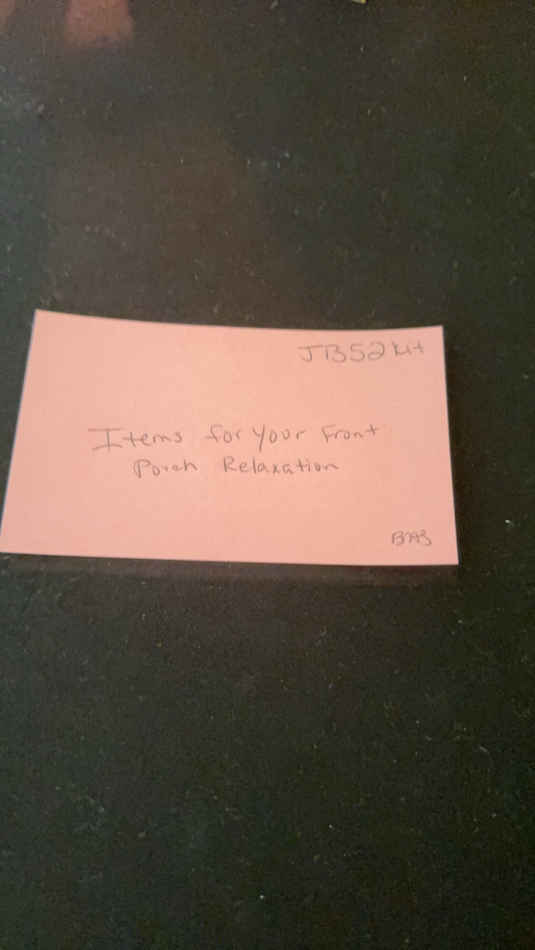 JB52 kit
Items for your Front
Porch Relaxation